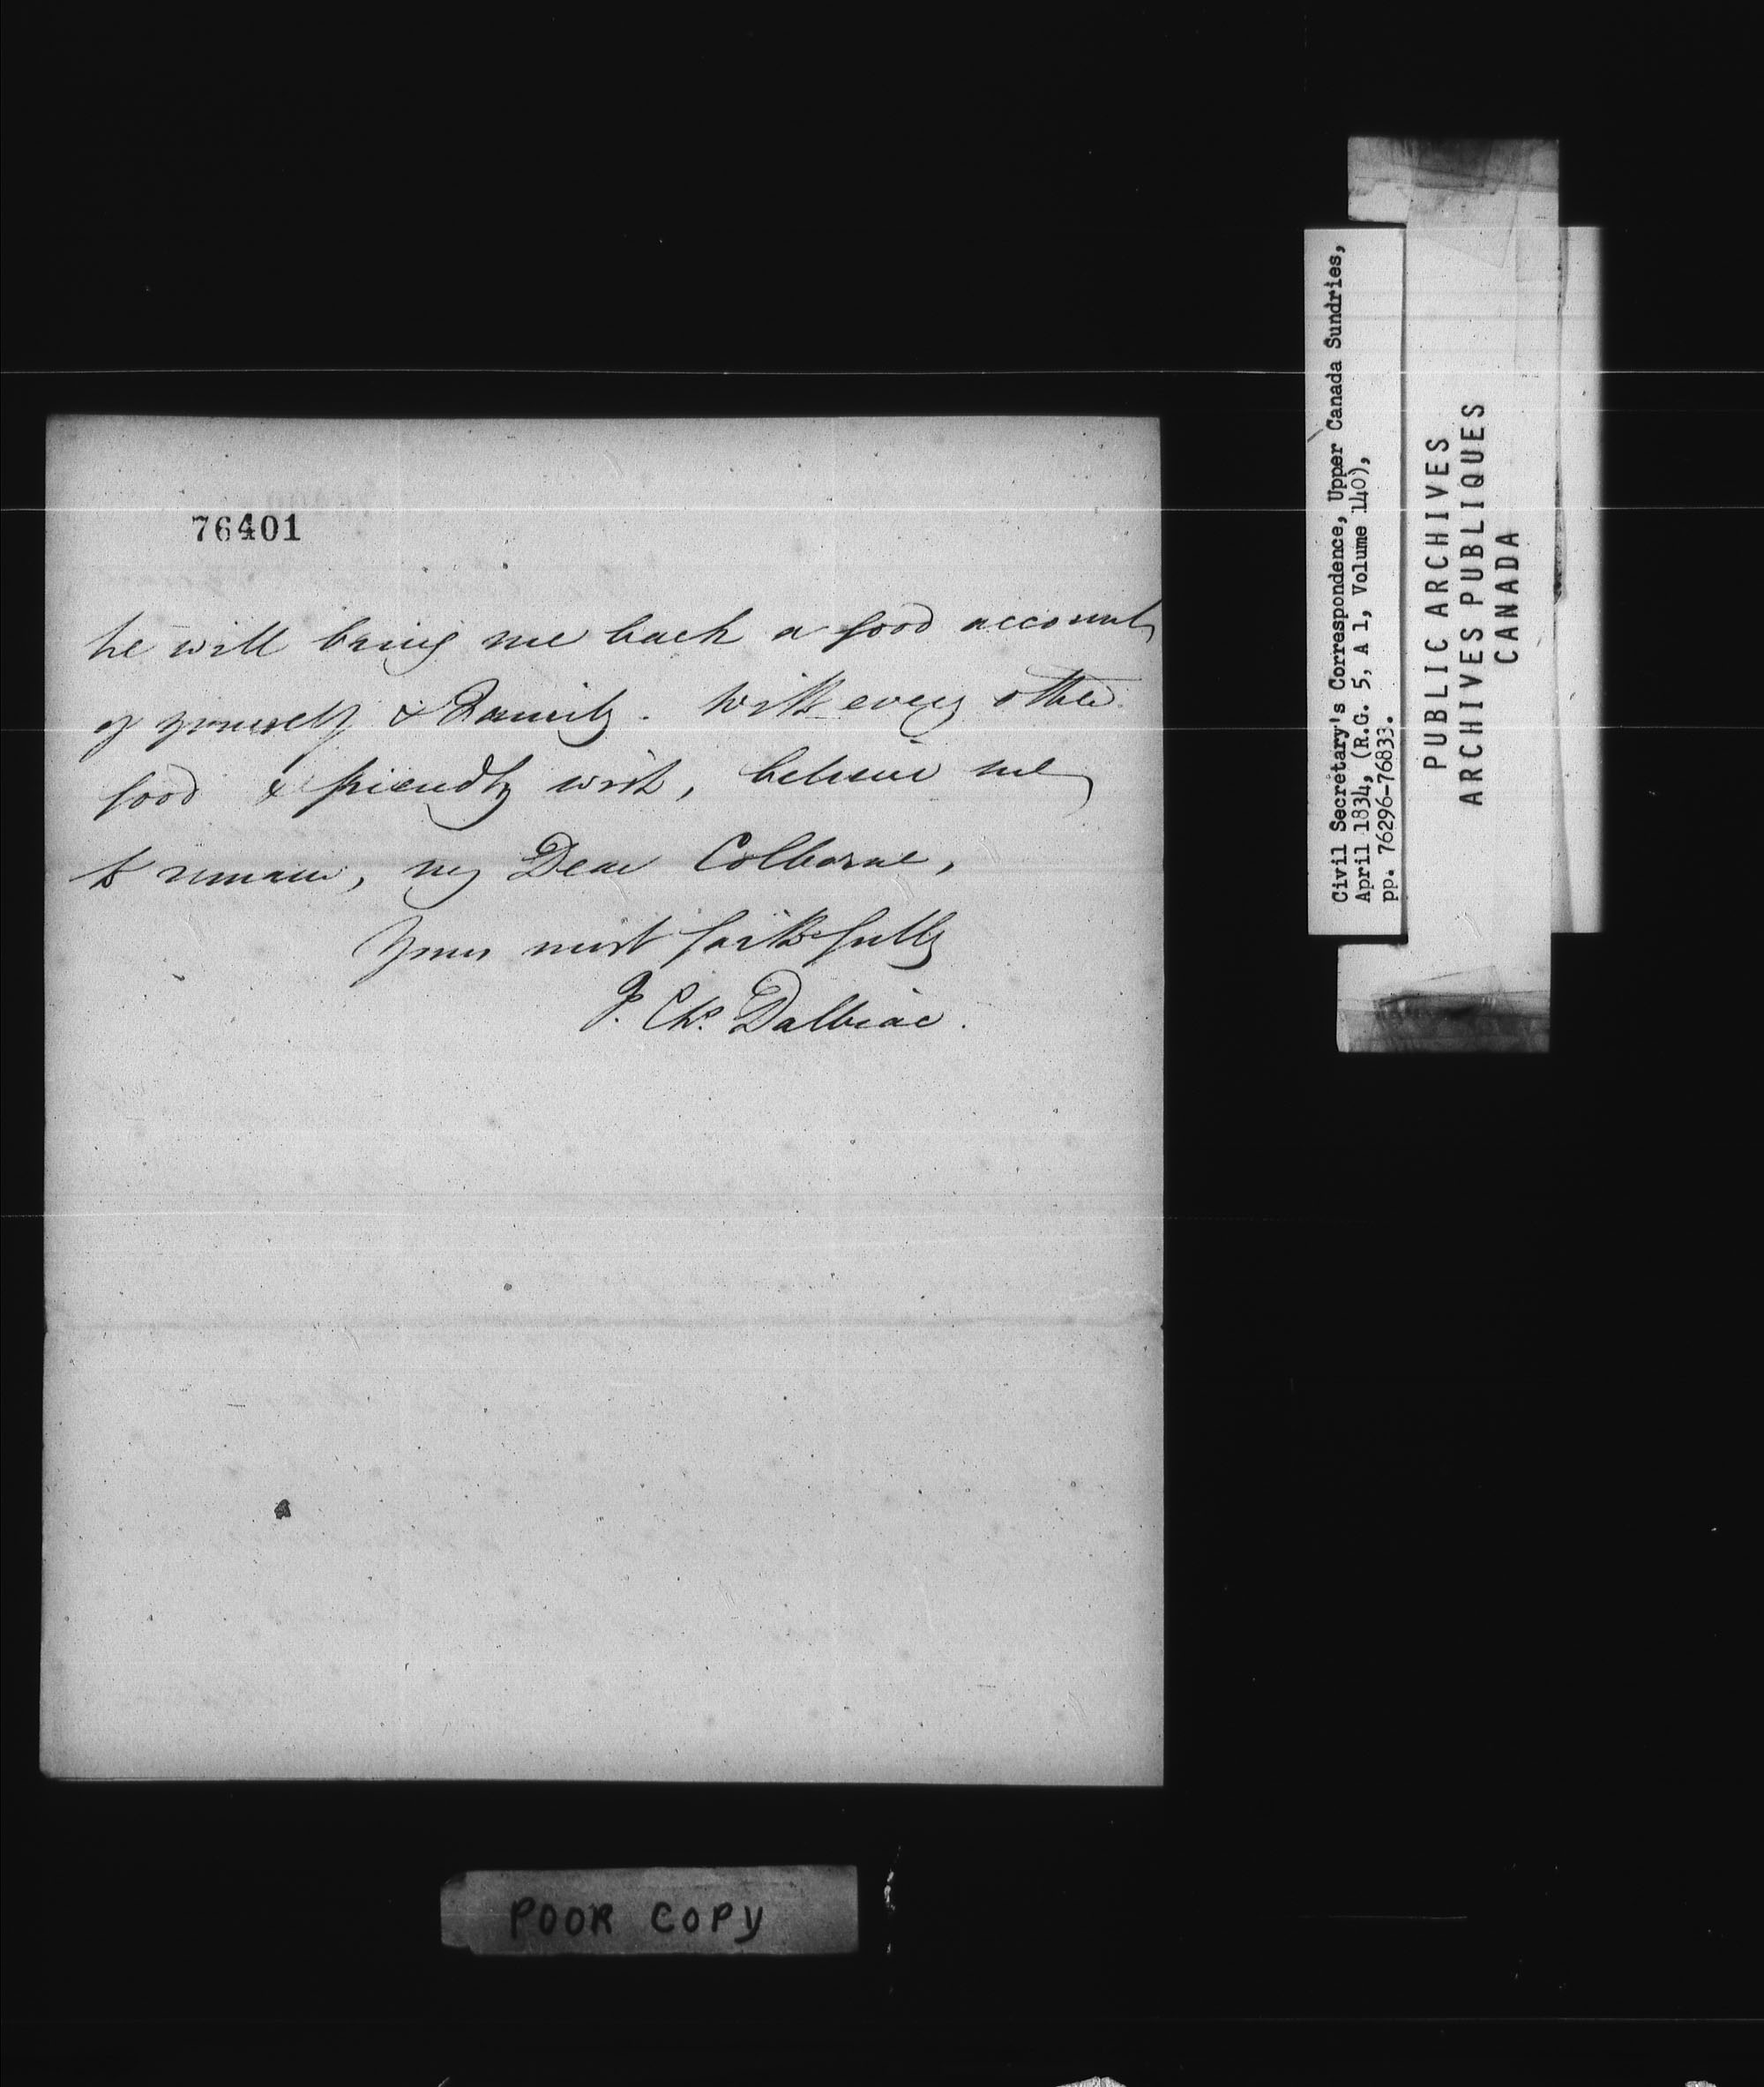 76401
he will bring me back a good account
of yourself & Family. With every other
good & friendly wish, believe me
to remain, my Dear Colborne,
Yours most faithfully
J. Chs. Dalbiac.
Civil Secretary's Correspondence, Upper Canada Sundries,
April 1834, (R.G. 5, A 1, Volume 140),
pp. 76296-76833.
PUBLIC ARCHIVES
ARCHIVES PUBLIQUES
CANADA
POOR COPY